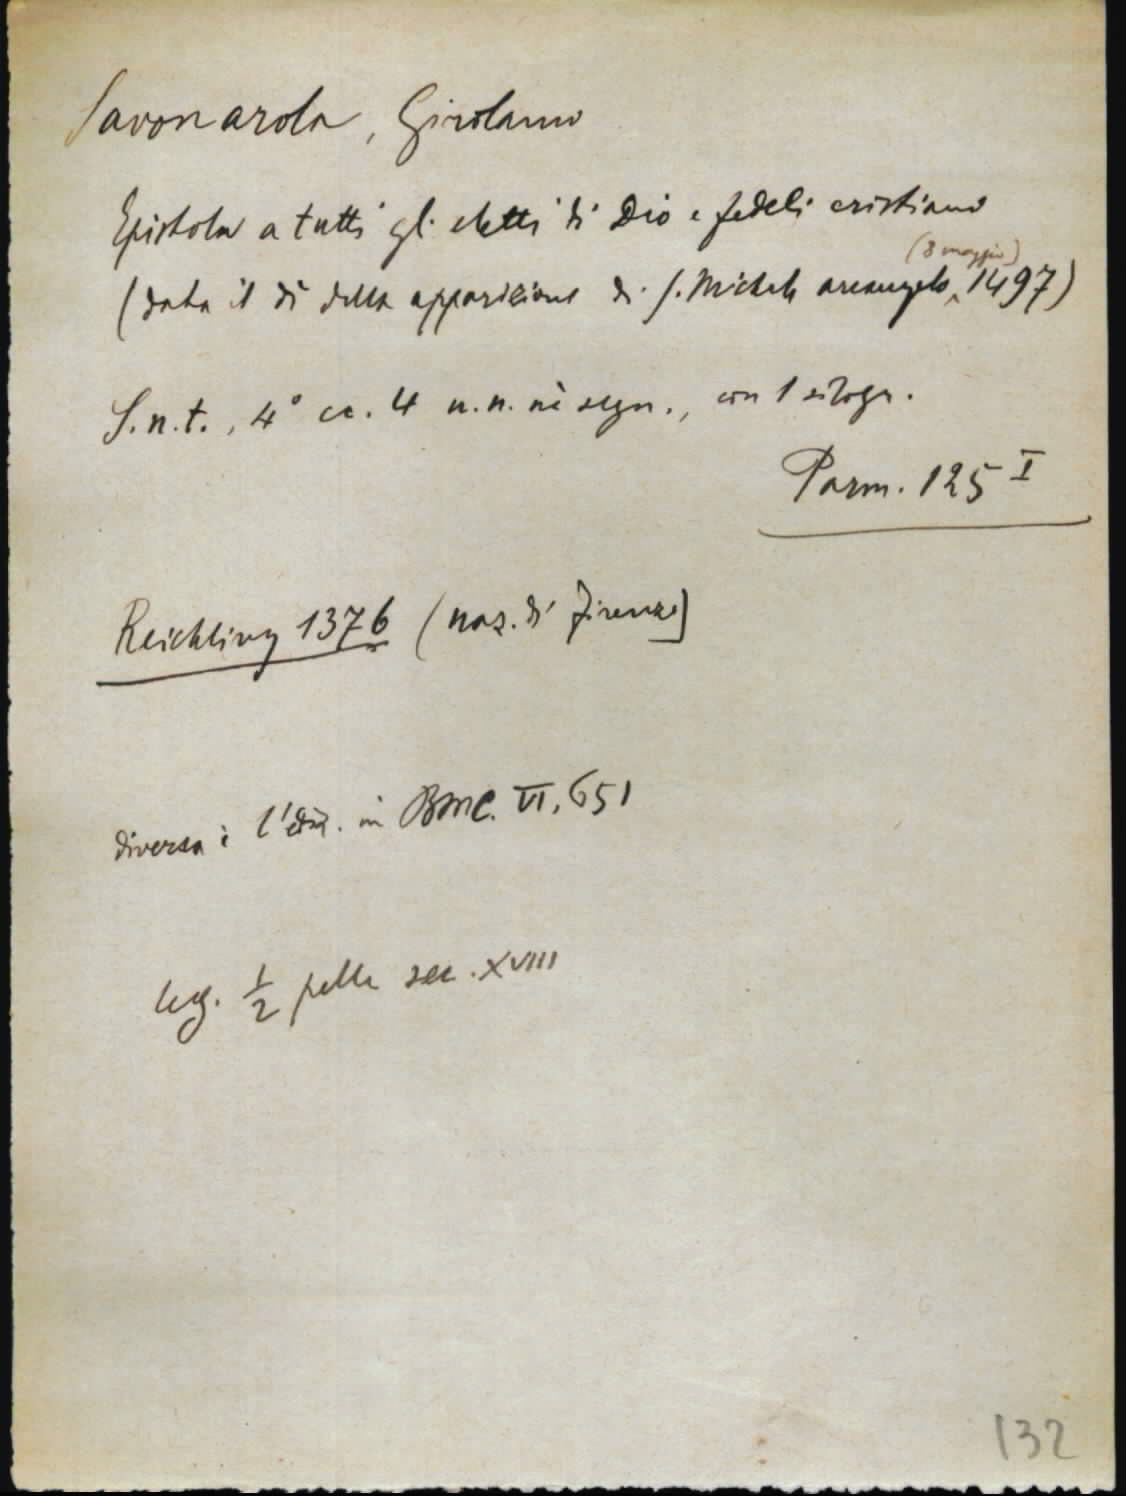 Savonarola, Girolamo
Epistola a tutti gli eletti di Dio e fedeli cristiano
(data il dì della apparizione di S. Michele arcangelo (8 maggio) 1497)
S.n.t., 4° cc. 4 n.n. nè segn., con 1 silogr.
Parm. 125 I
Reichling 1376 (naz. di Firenze)
diversa è l'ediz. in BMC. VI, 651
leg. 1/2 pelle sec. XVIII
132